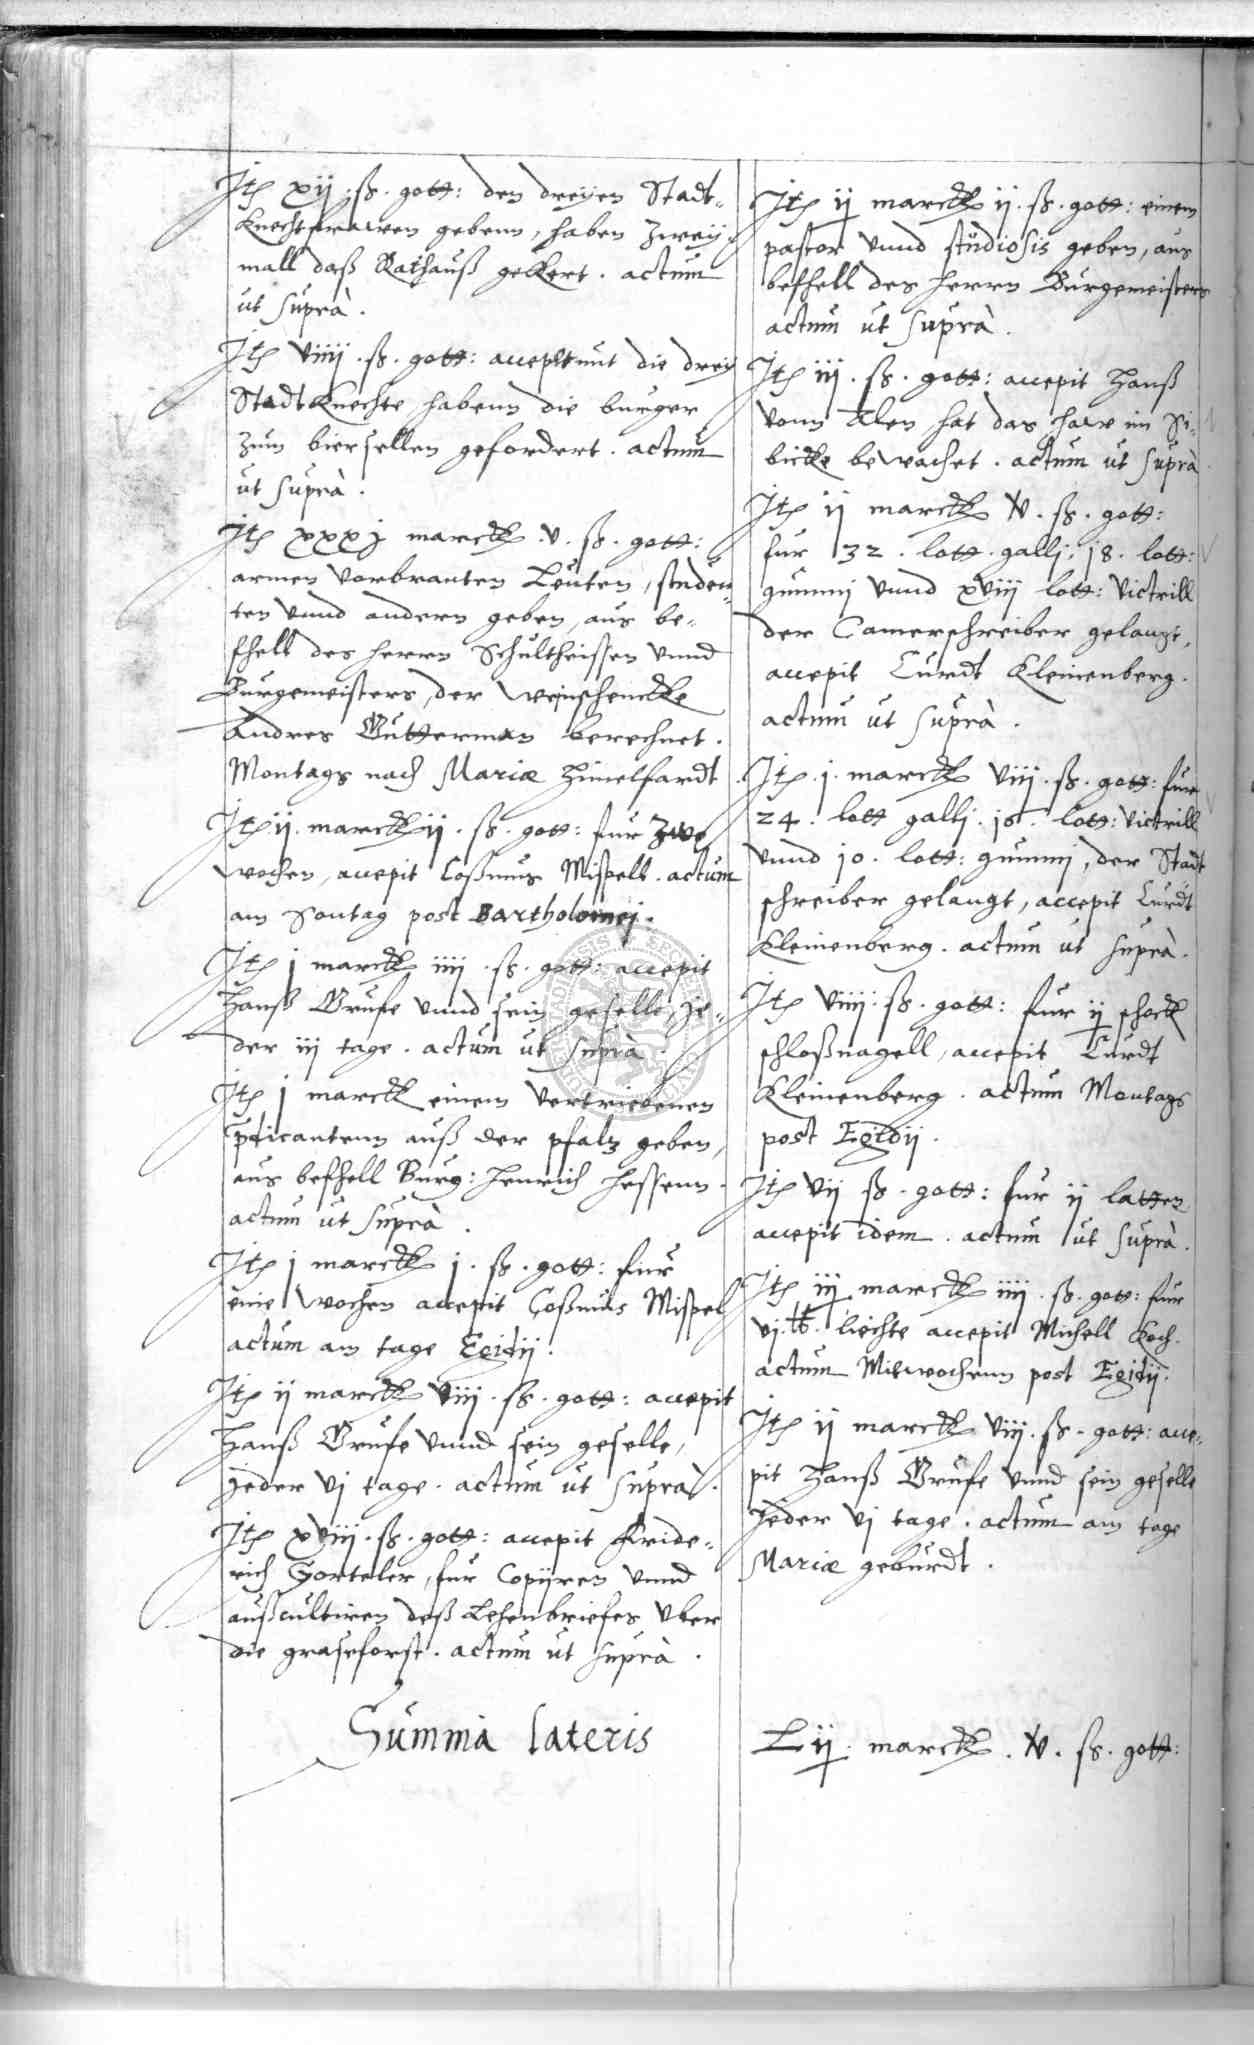 Itē xij. ß. gott: den dreyen Stadt-
knechtfrawen gebenn, haben zweij
mall daß Rathauß gekert. actum
ut suprà.
Itē viiij. ß. gott: acceptunt die dreij
Stadtknechte habenn die burger
zum biersellen gefordert. actum
ut suprà.
Itē xxxj marck .v. ß. gott:
armen vorbranten Leuten, studen-
ten vnnd andern geben, aus be-
fhell des herrn Schultheissen vnnd
Burgemeisters, der weinschencke
Andres Gutterman berechnet.
Montags nach Mariæ himelfardt
Itē ij. marck ij. ß. gott: fur zwo
wochen, accepit Coßmus Mispell. actum
am Sontag post Bartholomej.
Itē j marck iiij. ß. gott: accepit
Hanß Grufe vnnd sein geselle, je-
der iij tage. actum ut suprà.
Itē j marck einem vertriebenen
pdicantenn auß der pfaltz geben,
aus befhell Burg: Henrich Hessenn.
actum ut suprà.
Itē j marck j. ß. gott: fur
eine wochen accepit Coßmus Mispel
actum am tage Egidij.
Itē ij marck viij. ß. gott: accepit
Hanß Grufe vnnd sein geselle,
jeder vj tage. actum ut suprà.
Itē xviij. ß. gott: accepit Fride-
rich Sorteler, fur Copijren vnnd
außcultiren deß Lehenbriefes vber
die graseforst. actum ut suprà.
Summa lateris
Itē ij marck ij. ß. gott: einem
pastor vnnd studiosis geben, aus
befhell des herrn Burgemeisters
actum ut suprà.
Itē iij. ß. gott: accepit Hanß
vonn Alen hat das haw im Si-
bicke bewachet. actum ut suprà.
Itē ij marck v. ß. gott:
fur 32. lott. gallj. 18. lott:
gummj vnnd xviij lott: victrill
der Camerschreiber gelangt,
accepit Curdt Kleinenberg.
actum ut suprà.
Itē j. marck viij. ß. gott: fur
24. lott gallj. 18. lott: victrill
vnnd 10. lott: gummj, der Stadt
schreiber gelangt, accepit Curdt
Kleinenberg. actum ut suprà.
Itē viiij. ß. gott: fur ij schock
schloßnagell, accepit Curdt
Kleinenberg. actum Montags
post Egidij.
Itē vij ß. gott: fur ij latten
accepit idem. actum ut suprà.
Itē iij marck iiij. ß. gott: fur
vj. ℔. liechte accepit Michell Koch.
actum Mitwochenn post Egidij.
Itē ij marck viij. ß. gott: acce-
pit Hanß Grufe vnnd sein geselle
jeder vj tage. actum am tage
Mariæ geburdt.
Lij. marck. v. ß. gott: